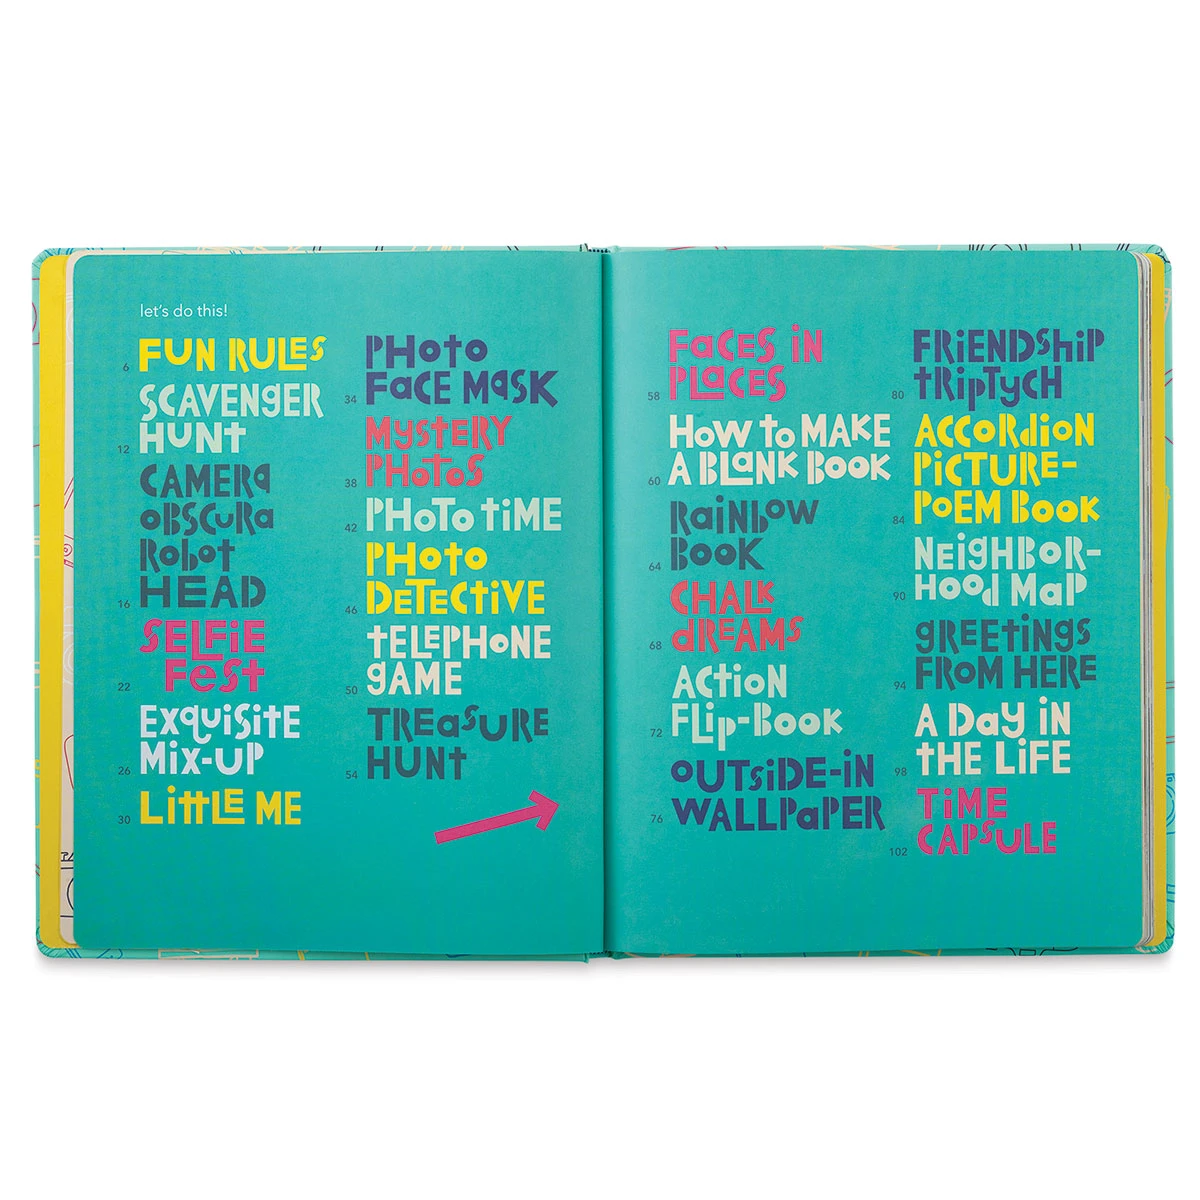 let's do this!
FUN RULES
6
SCAVENGER
HUNT
12
CAMERA
OBSCURA
ROBOT
HEAD
16
SELFIE
FEST
22
EXQUISITE
MIX-UP
26
LITTLE ME
30
PHOTO
FACE MASK
34
MYSTERY
PHOTOS
38
PHOTO TIME
42
PHOTO
DETECTIVE
46
TELEPHONE
GAME
50
TREASURE
HUNT
54
FACES IN
PLACES
58
HOW TO MAKE
A BLANK BOOK
60
RAINBOW
BOOK
64
CHALK
DREAMS
68
ACTION
FLIP-BOOK
72
OUTSIDE-IN
WALLPAPER
76
FRIENDSHIP
TRIPTYCH
80
ACCORDION
PICTURE-
POEM BOOK
84
NEIGHBOR-
HOOD MAP
90
GREETINGS
FROM HERE
94
A DAY IN
THE LIFE
98
TIME
CAPSULE
102